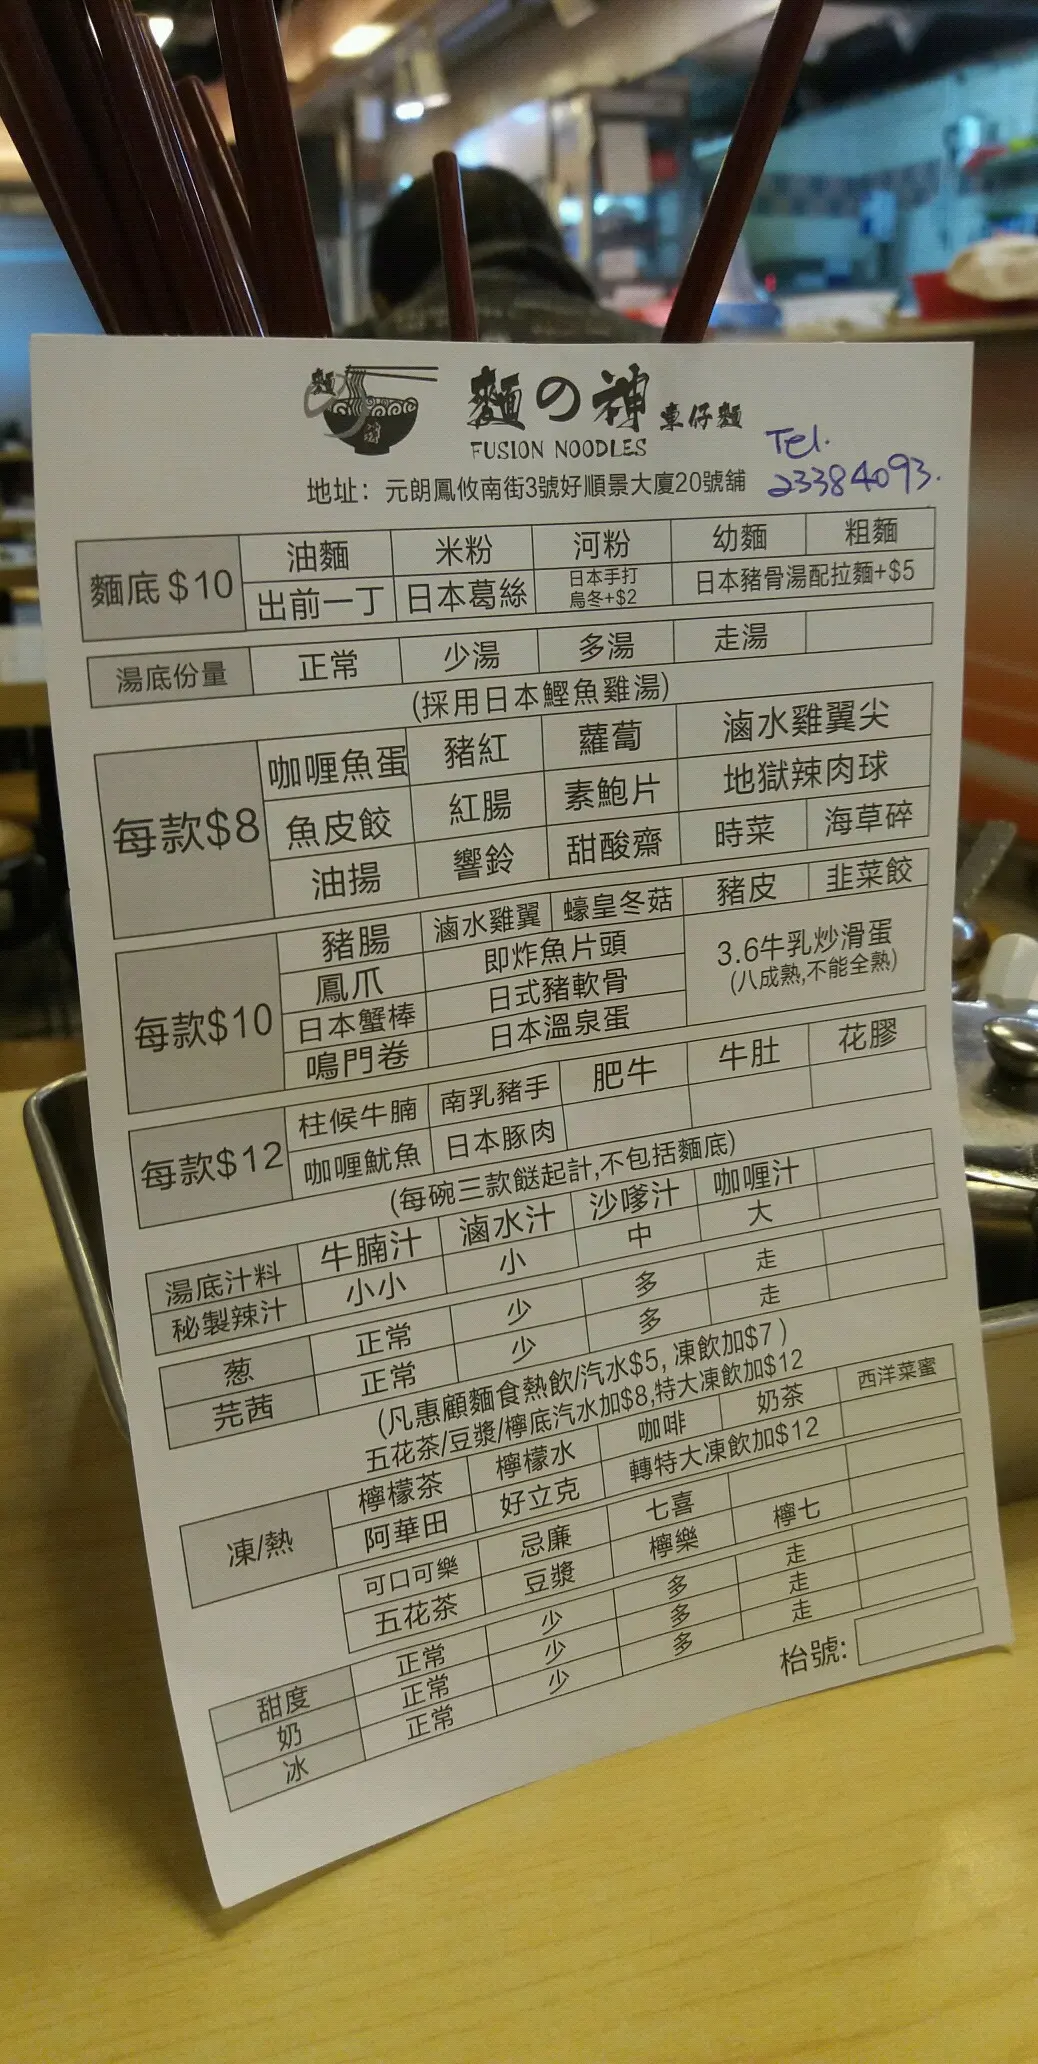 麵の神 車仔麵
FUSION NOODLES
Tel.
23384093.
地址：元朗鳳攸南街3號好順景大廈20號舖
麵底 $10 油麵 米粉 河粉 幼麵 粗麵
出前一丁 日本葛絲 日本手打烏冬+$2 日本豬骨湯配拉麵+$5
湯底份量 正常 少湯 多湯 走湯
(採用日本鰹魚雞湯)
每款$8 咖喱魚蛋 豬紅 蘿蔔 滷水雞翼尖
魚皮餃 紅腸 素鮑片 地獄辣肉球
油揚 響鈴 甜酸齋 時菜 海草碎
每款$10 豬腸 滷水雞翼 蠔皇冬菇 豬皮 韭菜餃
鳳爪 即炸魚片頭 3.6牛乳炒滑蛋
(八成熟,不能全熟)
日本蟹棒 日式豬軟骨
鳴門卷 日本溫泉蛋
每款$12 柱候牛腩 南乳豬手 肥牛 牛肚 花膠
咖喱魷魚 日本豚肉
(每碗三款餸起計,不包括麵底)
湯底汁料 牛腩汁 滷水汁 沙嗲汁 咖喱汁
秘製辣汁 小小 小 中 大
葱 正常 少 多 走
芫茜 正常 少 多 走
(凡惠顧麵食熱飲/汽水$5, 凍飲加$7 )
五花茶/豆漿/檸底汽水加$8,特大凍飲加$12
凍/熱 檸檬茶 檸檬水 咖啡 奶茶 西洋菜蜜
阿華田 好立克 轉特大凍飲加$12
可口可樂 忌廉 七喜
五花茶 豆漿 檸樂 檸七
甜度 正常 少 多 走
奶 正常 少 多 走
冰 正常 少 多 走
枱號: